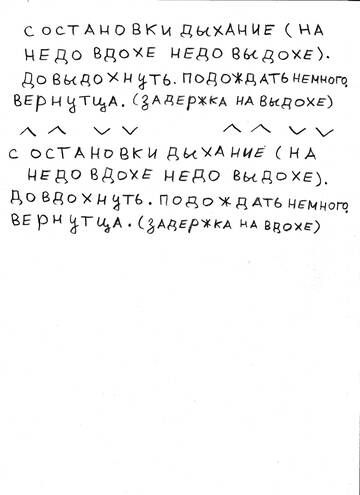 С ОСТАНОВКИ ДЫХАНИЕ (НА
НЕДО ВДОХЕ НЕДО ВЫДОХЕ).
ДО ВЫДОХНУТЬ. ПОДОЖДАТЬ НЕМНОГО.
ВЕРНУТЦА. (ЗАДЕРЖКА НА ВЫДОХЕ)
С ОСТАНОВКИ ДЫХАНИЕ (НА
НЕДО ВДОХЕ НЕДО ВЫДОХЕ).
ДО ВДОХНУТЬ. ПОДОЖДАТЬ НЕМНОГО.
ВЕРНУТЦА. (ЗАДЕРЖКА НА ВДОХЕ)